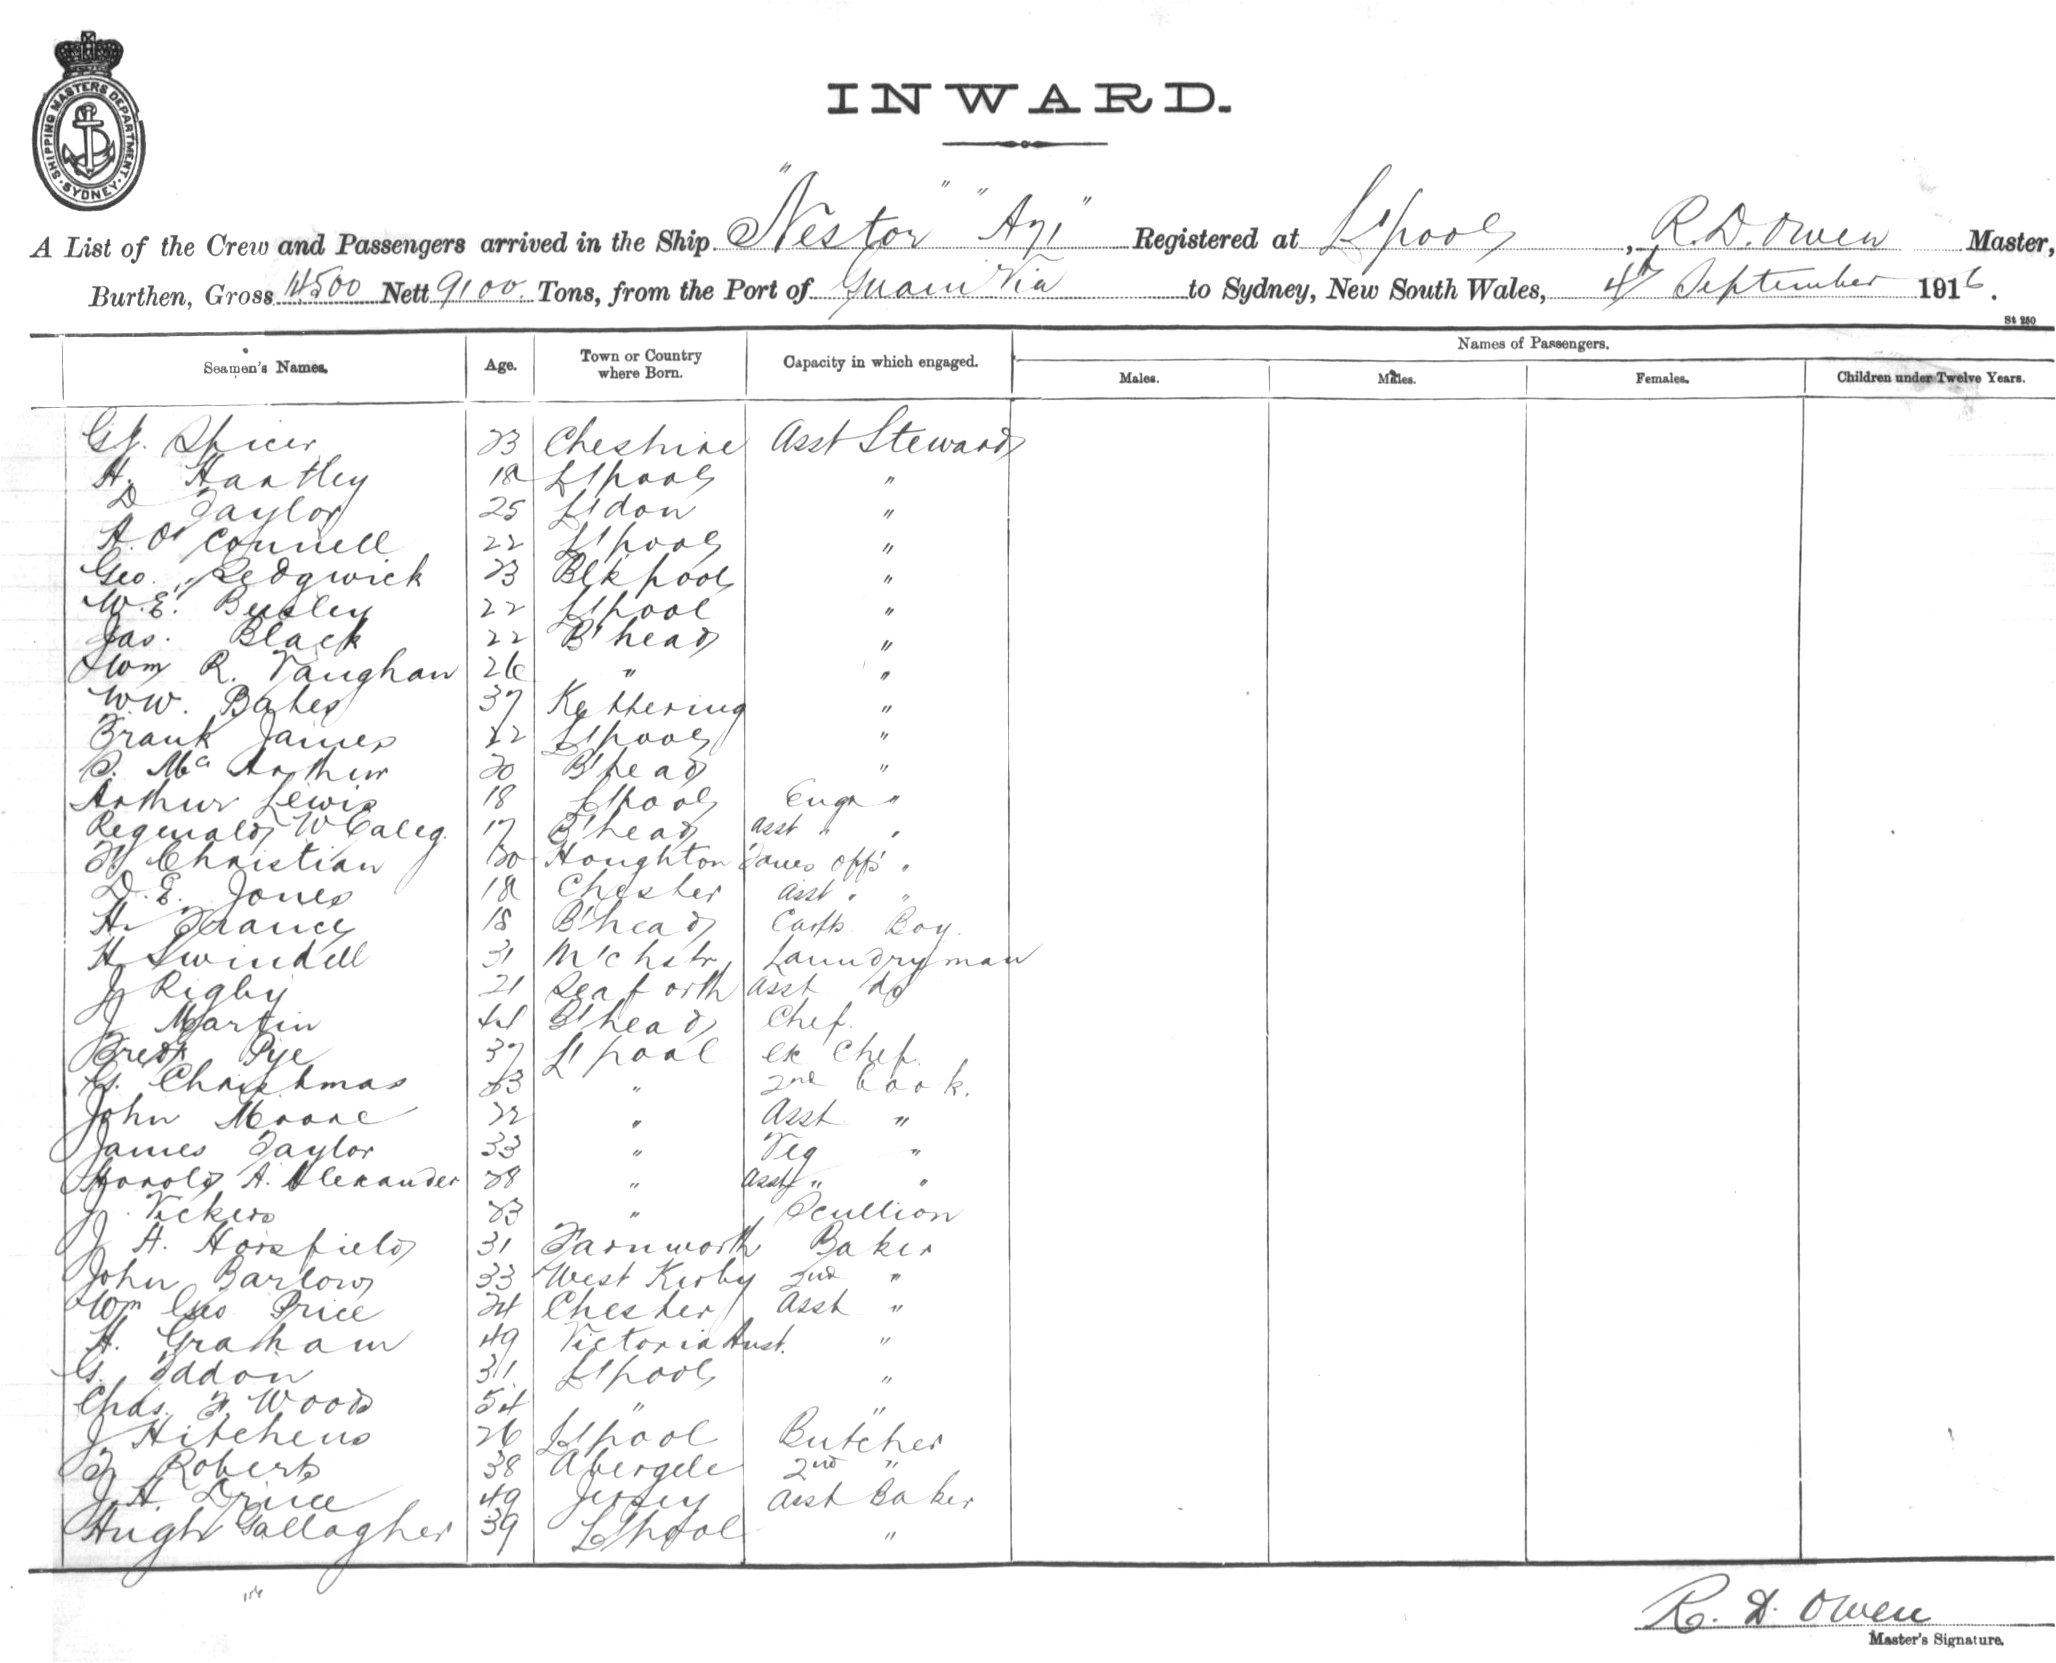 SHIPPING MASTERS DEPARTMENT. SYDNEY.
INWARD.
A List of the Crew and Passengers arrived in the Ship "Nestor" "A71" Registered at L'pool, R. D. Owen Master,
Burthen, Gross 14500 Nett 9100 Tons, from the Port of to Sydney, New South Wales, 4th September 1916.
St 250
Seamen's Names. Age. Town or Country where Born. Capacity in which engaged. Names of Passengers.
Males. Males. Females. Children under Twelve Years.
Spicer 23 Cheshire Asst Steward
H. Hartley 18 L'pool "
D Taylor 25 L'don "
A. O'Connell 22 L'pool "
Geo. Sedgwick 23 Bl'kpool "
W. E. Beesley 22 L'pool "
Jas. Black 22 B'head "
Wm R. Vaughan 26 " "
W. W. Bates 37 Kettering "
Frank James 22 L'pool "
Mc Arthur 20 B'head "
Arthur Lewis 18 L'pool Engr "
Reginald W 17 B'head Asst " "
Christian 20 Houghton Offs "
D. E. Jones 18 Chester Asst " "
H. Francy 18 B'head Boy.
H Swindell 31 M'chstr Laundryman
J Rigby 21 Seaforth Asst do
J Martin 44 B'head Chef.
Fredk Pye 37 L'pool Ex Chef.
G. Christmas 23 " 2nd Cook.
John Moore 22 " Asst "
James Taylor 33 " Veg "
Harold A. Alexander 28 " Asst " "
J. Vickers 23 " Scullion
J A. Horsfield 31 Farnworth Baker
John Barlow 33 West Kirby 2nd "
Wm Geo Price 24 Chester Asst "
H. Graham 49 Victoria Aust. "
G. Iddon 31 L'pool "
Chas. F. Wood 54 " "
J Hitchens 26 L'pool Butcher
Roberts 38 Abergele 2nd "
J. A. 49 Jersey Asst Baker
Hugh Gallagher 39 L'pool "
R. D. Owen
Master's Signature.